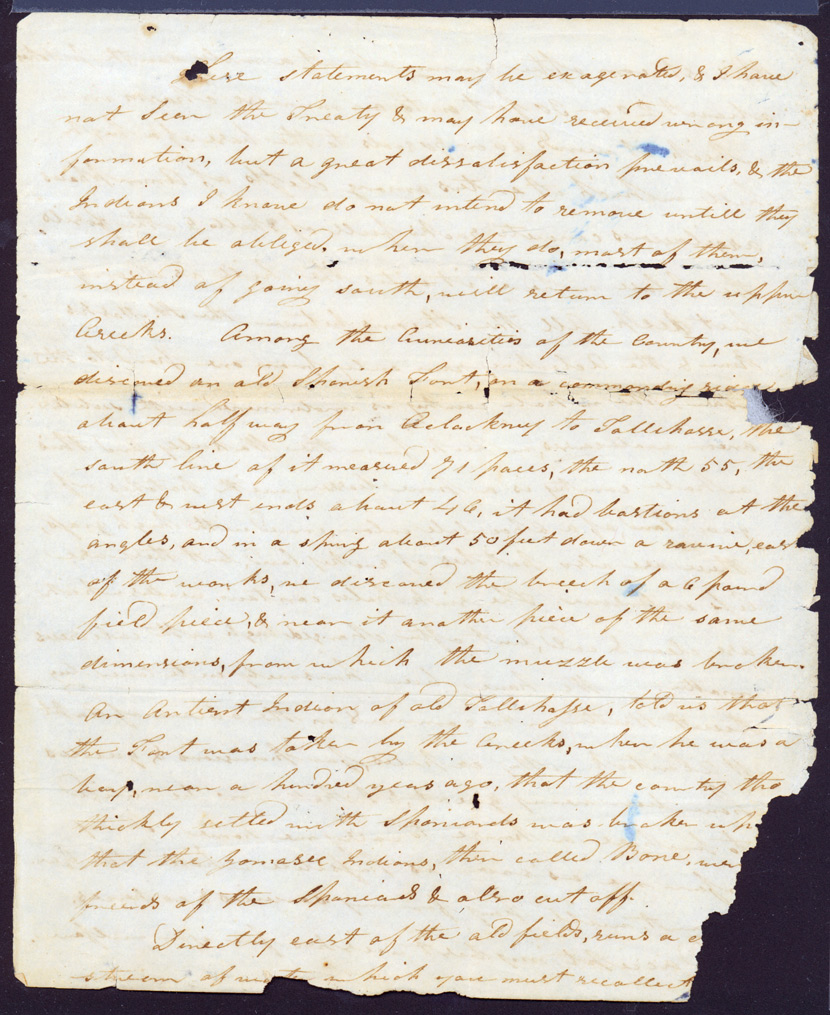 These statements may be exagerated, & I have
not seen the Treaty & may have received wrong in-
formation, but a great dissatisfaction prevails, & the
Indians I know do not intend to remove untill they
shall be obliged, when they do, most of them,
instead of going south, will return to the upper
Creeks. Among the Curiosities of the Country, we
discovered an old Spanish Fort, on a commanding
about half way from to Tallehasse, the
south line of it measured 71 paces, the north 55, the
east & west ends about 46, it had bastions at the
angles, and in a spring about 50 feet down a ravine, east
of the works, we discovered the breech of a 6 pound
field piece, & near it another piece of the same
dimensions, from which the muzzle was broken.
An Antient Indian of old Tallehasse, told us that
the Fort was taken by the Creeks, when he was a
boy, near a hundred years ago, that the country tho
thickly settled with Spaniards was broken up
that the Yomasee Indians, then called Bone, were
friends of the Spaniards & also cut off.
Directly east of the old fields, runs a
stream of water which you must recollect